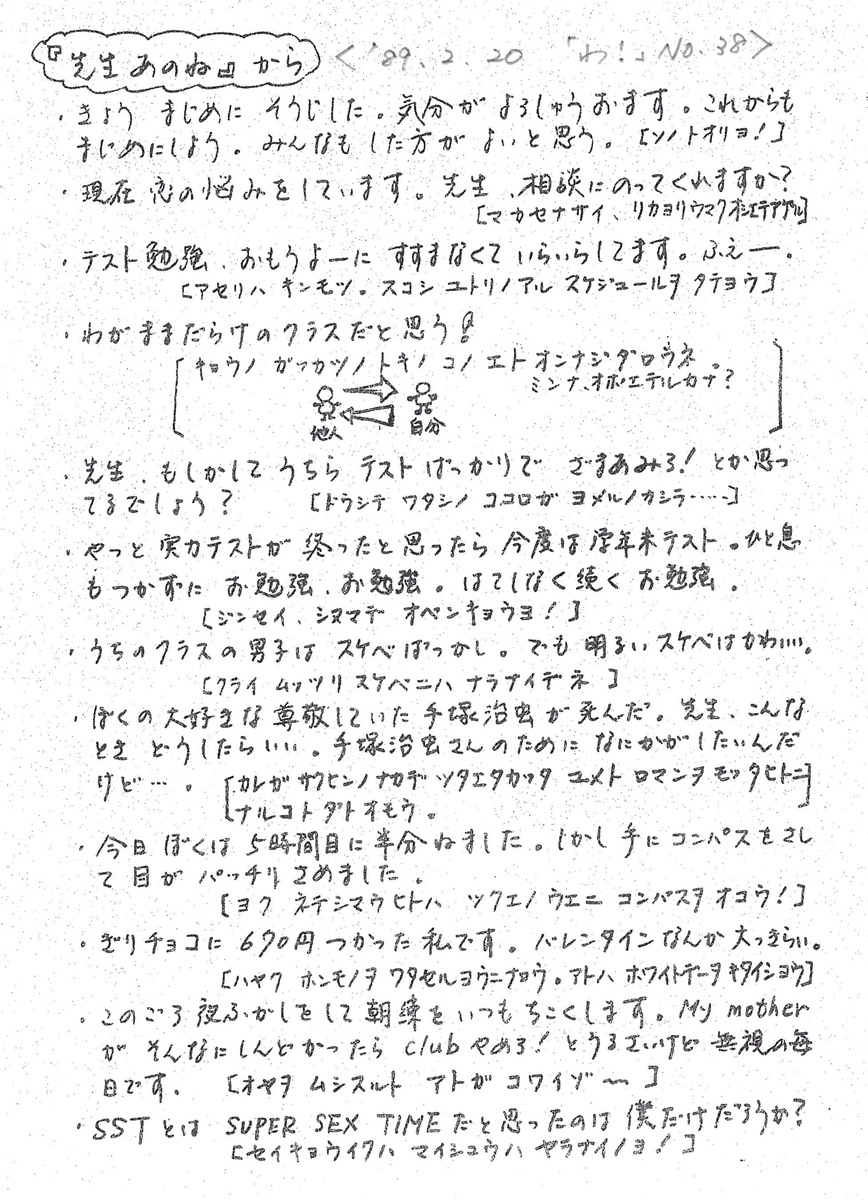 『先生あのね』から <'89.2.20 「わ!」No.38>
・きょう まじめに そうじした。気分が よろしゅうおます。これからも
まじめにしよう。みんなもした方が よいと思う。[ソノトオリヨ!]
・現在 恋の悩みをしています。先生、相談にのってくれますか?
[マカセナサイ、リカヨリウマクオシエテアゲル]
・テスト勉強、おもうよーに すすまなくて いらいらしてます。ふえー。
[アセリハ キンモツ。スコシ ユトリノアル スケジュールヲ タテヨウ]
・わがままだらけのクラスだと思う!
[キョウノ ガッカツノ トキノ コノ エト オンナジダロウネ。
ミンナ、オボエテルカナ?]
他人 自分
・先生、もしかして うちら テストばっかりで ざまあみろ! とか思っ
てるでしょう? [ドウシテ ワタシノ ココロガ ヨメルノカシラ……]
・やっと 実力テストが 終ったと思ったら 今度は 学年末テスト。ひと息
もつかずに お勉強、お勉強。はてしなく続く お勉強。
[ジンセイ、シヌマデ オベンキョウヨ!]
・うちのクラスの男子は スケベばっかし。でも 明るいスケベはかわいい。
[クライ ムッツリ スケベニハ ナラナイデネ]
・ぼくの大好きな尊敬していた手塚治虫が死んだ。先生、こんな
とき どうしたらいい。手塚治虫さんのために なにかがしたいんだ
けど…。[カレガ サクヒンノナカデ ツタエタカッタ ユメト ロマンヲ モッタヒトニ
ナルコトダトオモウ。]
・今日 ぼくは 5時間目に半分ねました。しかし 手にコンパスをさし
て 目が パッチリ さめました。
[ヨク ネテシマウヒトハ ツクエノ ウエニ コンパスヲ オコウ!]
・ぎりチョコに 670円 つかった私です。バレンタインなんか大っきらい。
[ハヤク ホンモノヲ ワタセルヨウニナロウ。アトハ ホワイトデーヲ キタイショウ]
・このごろ夜ふかしをして 朝練をいつもちこくします。My mother
が そんなにしんどかったら club やめろ! とうるさいけど 無視の毎
日です。[オヤヲ ムシスルト アトガ コワイゾ〜]
・SSTとは SUPER SEX TIMEだと思ったのは僕だけだろうか?
[セイキョウイクハ マイシュウハ ヤラナイノヨ!]